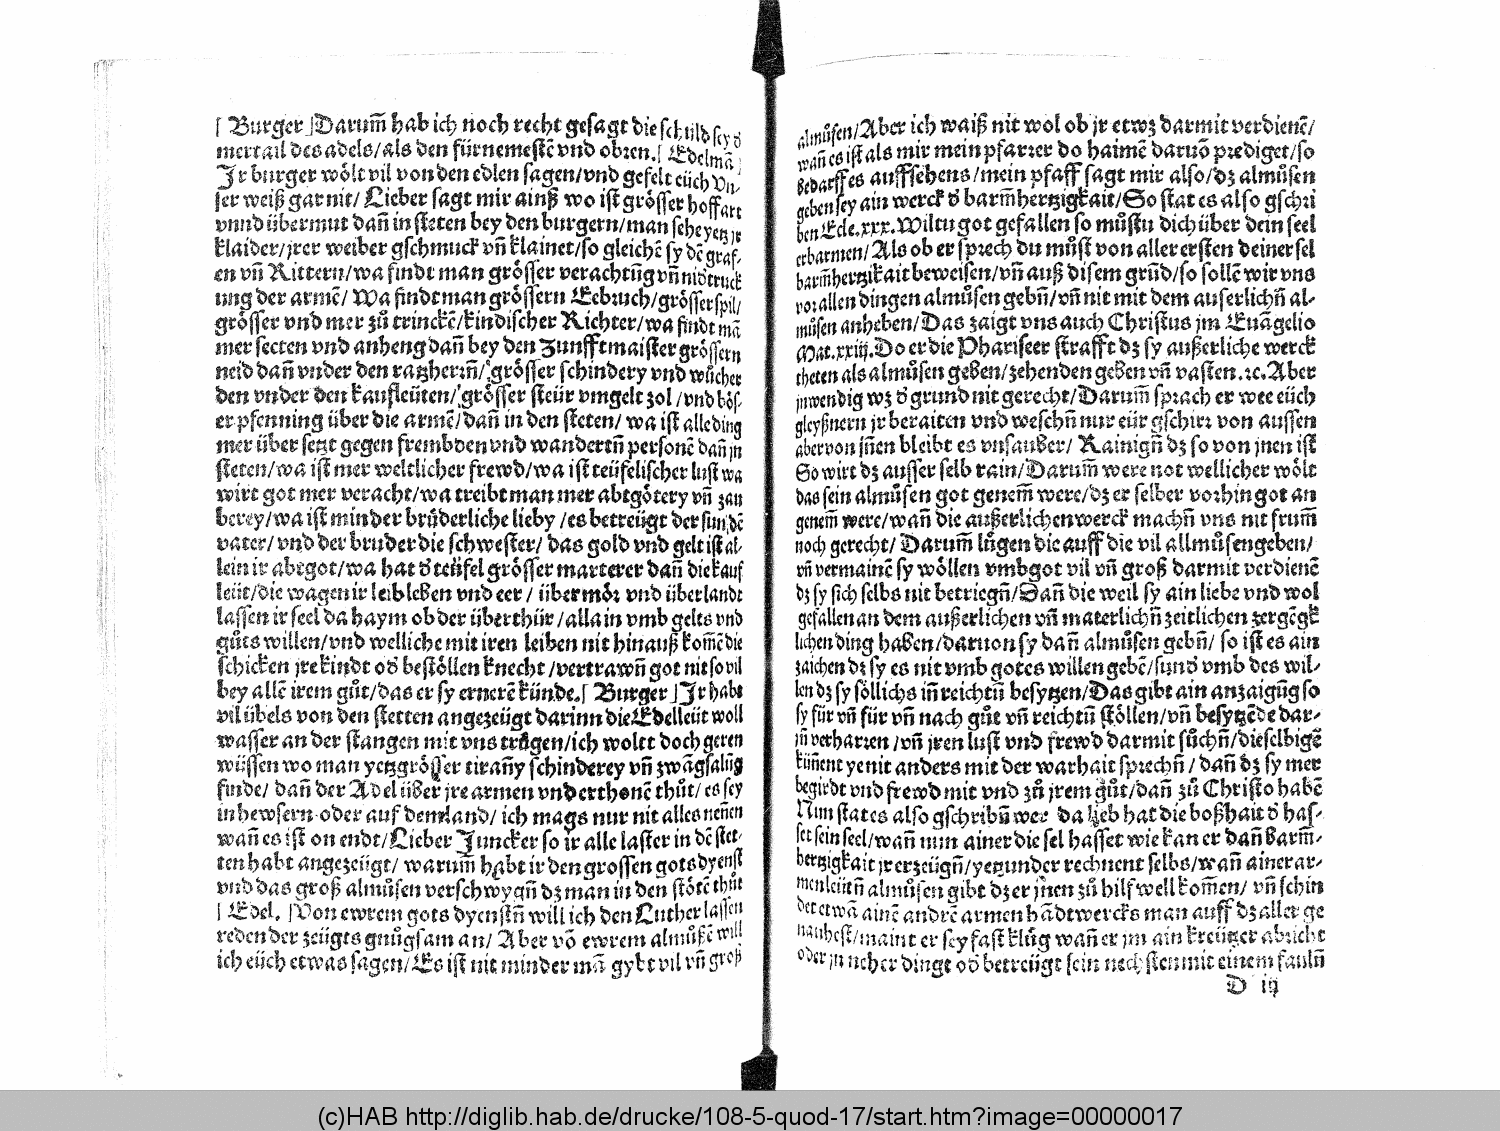 [ Burger ]Darum̃ hab ich noch recht gesagt die schild sey ð
mertail des adels/als den fürnemestẽ vnd obren.[ Edelmã ]
Ir burger wölt vil von den edlen sagen/vnd gefelt eüch vn-
ser weiß gar nit/ Lieber sagt mir ainß wo ist grösser hoffart
vnnd übermut dañ in steten bey den burgern/man sehe yetz jr
klaider/jrer weiber gschmuck vñ klainet/so gleichẽ sy dẽ graf-
en vñ Rittern/wa findt man grösser verachtũg vñ nidtruck
ung der armẽ/ Wa findt man grössern Eebruch/grösser spil/
grösser vnd mer zů trinckẽ/kindischer Richter/wa findt mã
mer secten vnd anheng dañ bey den Zunfftmaister grössern
neid dañ vnder den ratzherrñ/ grösser schindery vnd wůcher
den vnder den kaufleüten/ grösser steür vmgelt zol /vnd bös-
er pfenning über die armẽ/dañ in den steten/ wa ist alle ding
mer über setzt gegen frembden vnd wandertñ personẽ dañ jn
steten/wa ist mer weltlicher frewd/wa ist teüfelischer lust wa
wirt got mer veracht/wa treibt man mer abtgötery vñ zau
berey/wa ist minder brüderliche lieby /es betreügt der sun dẽ
vater/vnd der bruder die schwester/ das gold vnd gelt ist al-
lein ir abtgot/wa hat ð teüfel grösser marterer dañ die kauf
leüt/die wagen ir leib leben vnd eer / über mör vnd über landt
lassen ir seel da haym ob der überthür /allain vmb gelts vnd
gůts willen/vnd welliche mit iren leiben nit hinauß kom̃ẽ die
schicken jre kindt oð bestöllen knecht /vertrawñ got nit so vil
bey allẽ irem gůt/das er sy ernerẽ künde.[ Burger ]Ir habt
vil übels von den stetten angezeügt darinn die Edelleüt woll
wasser an der stangen mit vns tragen/ich wolt doch geren
wüssen wo man yetz grösser tirañy schinderey vñ zwãgsalũg
finde/ dañ der Adel über jre armen vnderthonẽ thůt/ es sey
in hewsern oder auf dem land/ ich mags nur nit alles neñen
wañ es ist on endt/Lieber Juncker so ir alle laster in dẽ stet-
ten habt angezeügt/ warum̃ habt ir den grossen gots dyenst
vnd das groß almůsen verschwygñ dz man in den stötẽ thůt
[ Edel. ]Von ewrem gots dyenstñ will ich den Luther lassen
reden der zeügts gnůgsam an/ Aber võ ewrem almůßẽ will
ich eüch etwas sagen/Es ist nit minder mã gybt vil vñ groß
almůsen/Aber ich waiß nit wol ob jr etwz darmit verdienẽ/
wañ es ist als mir mein pfarrer do haimẽ daruõ prediget/so
bedarff es auffsehens/mein pfaff sagt mir also/dz almůsen
geben sey ain werck ð barm̃hertzigkait/So stat es also gschri
ben Ecle.xxx.Wiltu got gefallen so můstu dich über dein seel
erbarmen/Als ob er sprech du můst von aller ersten deiner sel
barm̃hertzikait beweisen/vñ auß disem grũd/so sollẽ wir vns
vor allen dingen almůsen gebñ/vñ nit mit dem auserlichñ al-
můsen anheben/Das zaigt vns auch Christus jm Euãgelio
Mat.xxiij.Do er die Phariseer strafft dz sy außerliche werck
theten als almůsen geben/zehenden geben vñ vasten.rc.Aber
jnwendig wz ð grund nit gerecht/Darum̃ sprach er wee eüch
gleyßnern jr beraiten vnd weschñ nur eür gschirr von aussen
aber von jñen bleibt es vnsauber/ Rainigñ dz so von jnen ist
So wirt dz ausser selb rain/Darum̃ were not wellicher wölt
das sein almůsen got genem̃ were/dz er selber vorhin got an
genem̃ were/wañ die außerlichen werck machñ vns nit frum̃
noch gerecht/ Darum̃ lůgen die auff die vil allmůsen geben/
vñ vermainẽ sy wöllen vmb got vil vñ groß darmit verdienẽ
dz sy sich selbs nit betriegñ/Dañ die weil sy ain liebe vnd wol
gefallen an dem außerlichen vñ materlichñ zeitlichen zergẽgk
lichen ding haben/daruon sy dañ almůsen gebñ/ so ist es ain
zaichen dz sy es nit vmb gotes willen gebẽ/sunð vmb des wil-
len dz sy söllichs im̃ reichtũ besytzen/Das gibt ain anzaigũg so
sy für vñ für vñ nach gůt vñ reichtũ stöllen/vñ besytzẽ de dar-
jñ verharren /vñ jren lust vnd frewd darmit sůchñ/dieselbigẽ
küñent ye nit anders mit der warhait sprechñ / dañ dz sy mer
begirdt vnd frewd mit vnd zů jrem gůt/dañ zů Christo habẽ
Nun stat es also gschribñ wer da lieb hat die boßhait ð has-
set sein seel/wañ nun ainer die sel hasset wie kan er dañ barm̃-
hertzigkait jr erzeügñ/yetzunder rechnent selbs/wañ ainer ar-
men leütñ almůsen gibt dz er jnen zů hilf well kom̃en/ vñ schin
det etwã ainẽ andrẽ armen hãdtwercks man auff dz aller ge
nauhest/maint er sey fast klůg wañ er jm ain kreützer abricht
oder jn neher dingt oð betreügt sein nechsten mit einem faulñ
D iij
(c)HAB http://diglib.hab.de/drucke/108-5-quod-17/start.htm?image=00000017